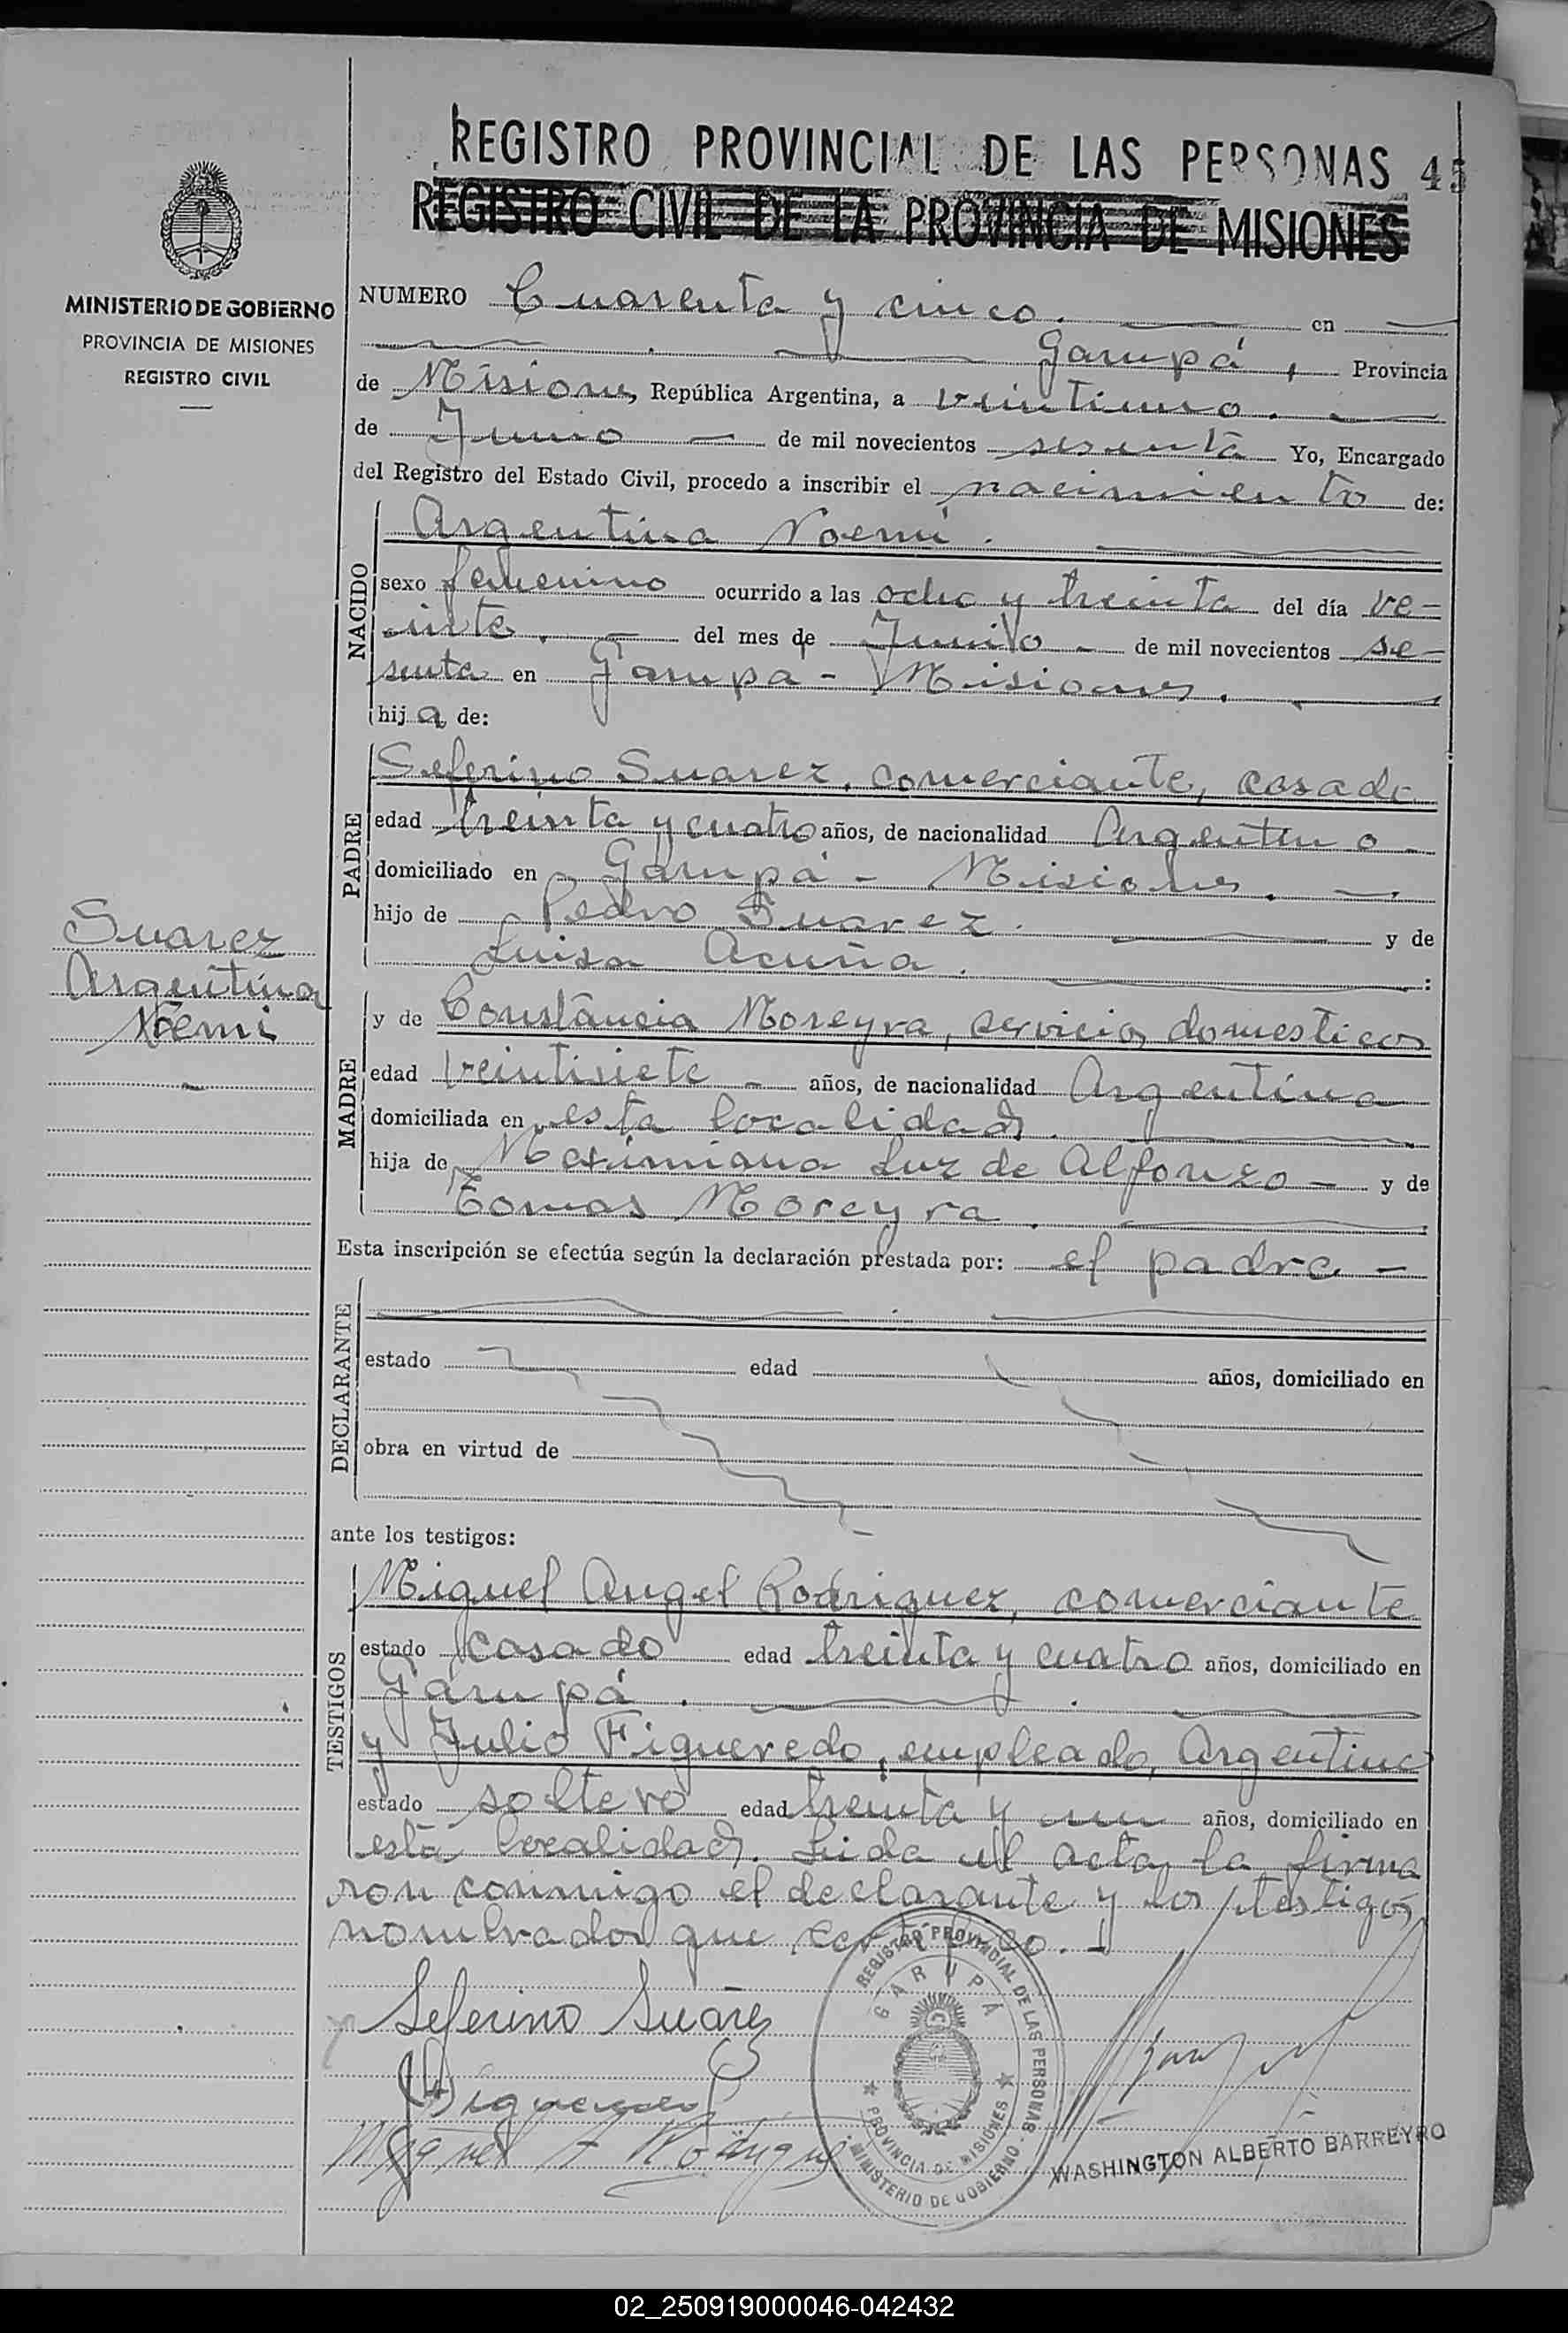 REGISTRO PROVINCIAL DE LAS PERSONAS 45
REGISTRO CIVIL DE LA PROVINCIA DE MISIONES
MINISTERIO DE GOBIERNO
PROVINCIA DE MISIONES
REGISTRO CIVIL
NUMERO Cuarenta y cinco. en
Garupá, Provincia
de Misiones, República Argentina, a veintiuno.
de Junio de mil novecientos sesenta Yo, Encargado
del Registro del Estado Civil, procedo a inscribir el nacimiento de:
NACIDO
Argentina Noemí.
sexo femenino ocurrido a las ocho y treinta del día ve-
inte. del mes de Junio de mil novecientos se-
senta en Garupa - Misiones.
hija de:
PADRE
Seferino Suarez, comerciante, casado
edad treinta y cuatro años, de nacionalidad Argentino
domiciliado en Garupá - Misiones.
hijo de Pedro Suarez. y de
Luisa Acuña. :
Suarez
Argentina
Noemi
MADRE
y de Constancia Moreyra, servicios domesticos
edad veintisiete - años, de nacionalidad Argentina
domiciliada en esta localidad.
hija de Maximiana Luz de Alfonzo - y de
Tomas Moreyra.
Esta inscripción se efectúa según la declaración prestada por: el padre -
DECLARANTE
estado edad años, domiciliado en
obra en virtud de
ante los testigos:
TESTIGOS
Miguel Angel Rodriguez, comerciante
estado casado edad treinta y cuatro años, domiciliado en
Garupá.
y Julio Figueredo, empleado, Argentino
estado soltero edad treinta y un años, domiciliado en
esta localidad. Leida el acta, la firma
ron conmigo el declarante y los testigos
nombrados que certifico. -
Seferino Suarez
Figueredo
Miguel A Rodriguez
REGISTRO PROVINCIAL DE LAS PERSONAS
GARUPÁ
PROVINCIA DE MISIONES
MINISTERIO DE GOBIERNO
WASHINGTON ALBERTO BARREYRO
02_250919000046-042432